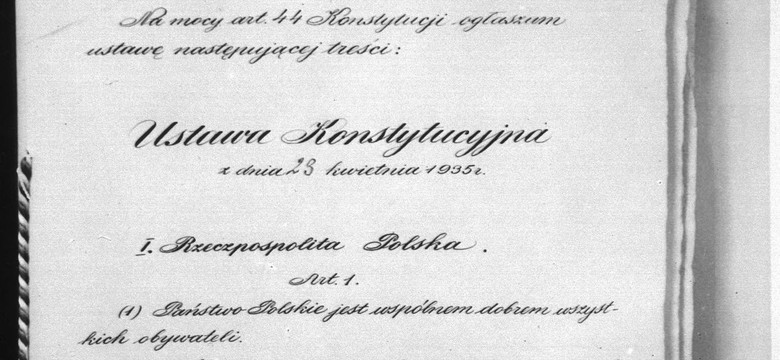 Na mocy art. 44 Konstytucji ogłaszum
ustawę następującej treści:
Ustawa Konstytucyjna
z dnia 23 kwietnia 1935r.
I. Rzeczpospolita Polska.
Art. 1.
(1) Państwo Polskie jest wspólnem dobrem wszyst-
kich obywateli.